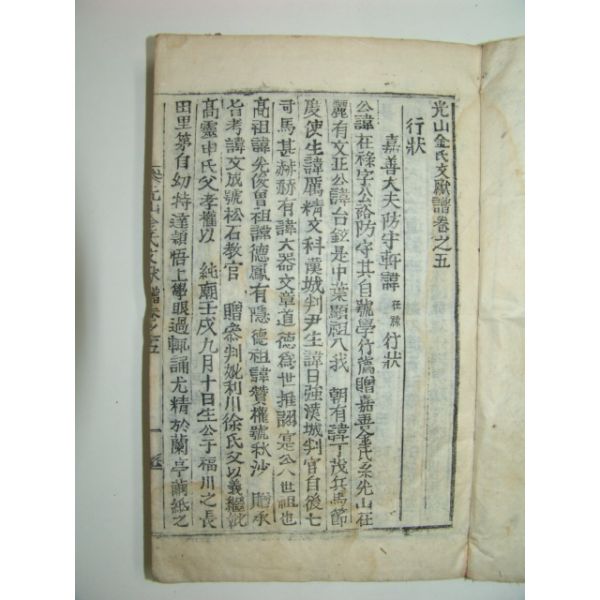 光山金氏文獻譜卷之五
行狀
嘉善大夫防守軒諱在祿行狀
公諱在祿字公裕防守其自號學行薦贈嘉善金氏系光山在
麗有文正公諱台鉉是中葉顯祖入我 朝有諱丁茂兵馬節
度使生諱厲精文科漢城判尹生諱日強漢城判官自後七
司馬甚赫赫有諱大器文章道德爲世推詡寔公八世祖也
高祖諱光俊曾祖諱德鳳有隱德祖諱贊權號秋沙 贈承
旨考諱文成號松石教官 贈參判妣利川徐氏父以義繼妣
高靈申氏父孝權以 純朝壬戌九月十日生公于福川之長
田里第自幼特達穎悟上學眼過輒誦尤精於蘭亭繭紙之
光山金氏文獻譜卷之五 一